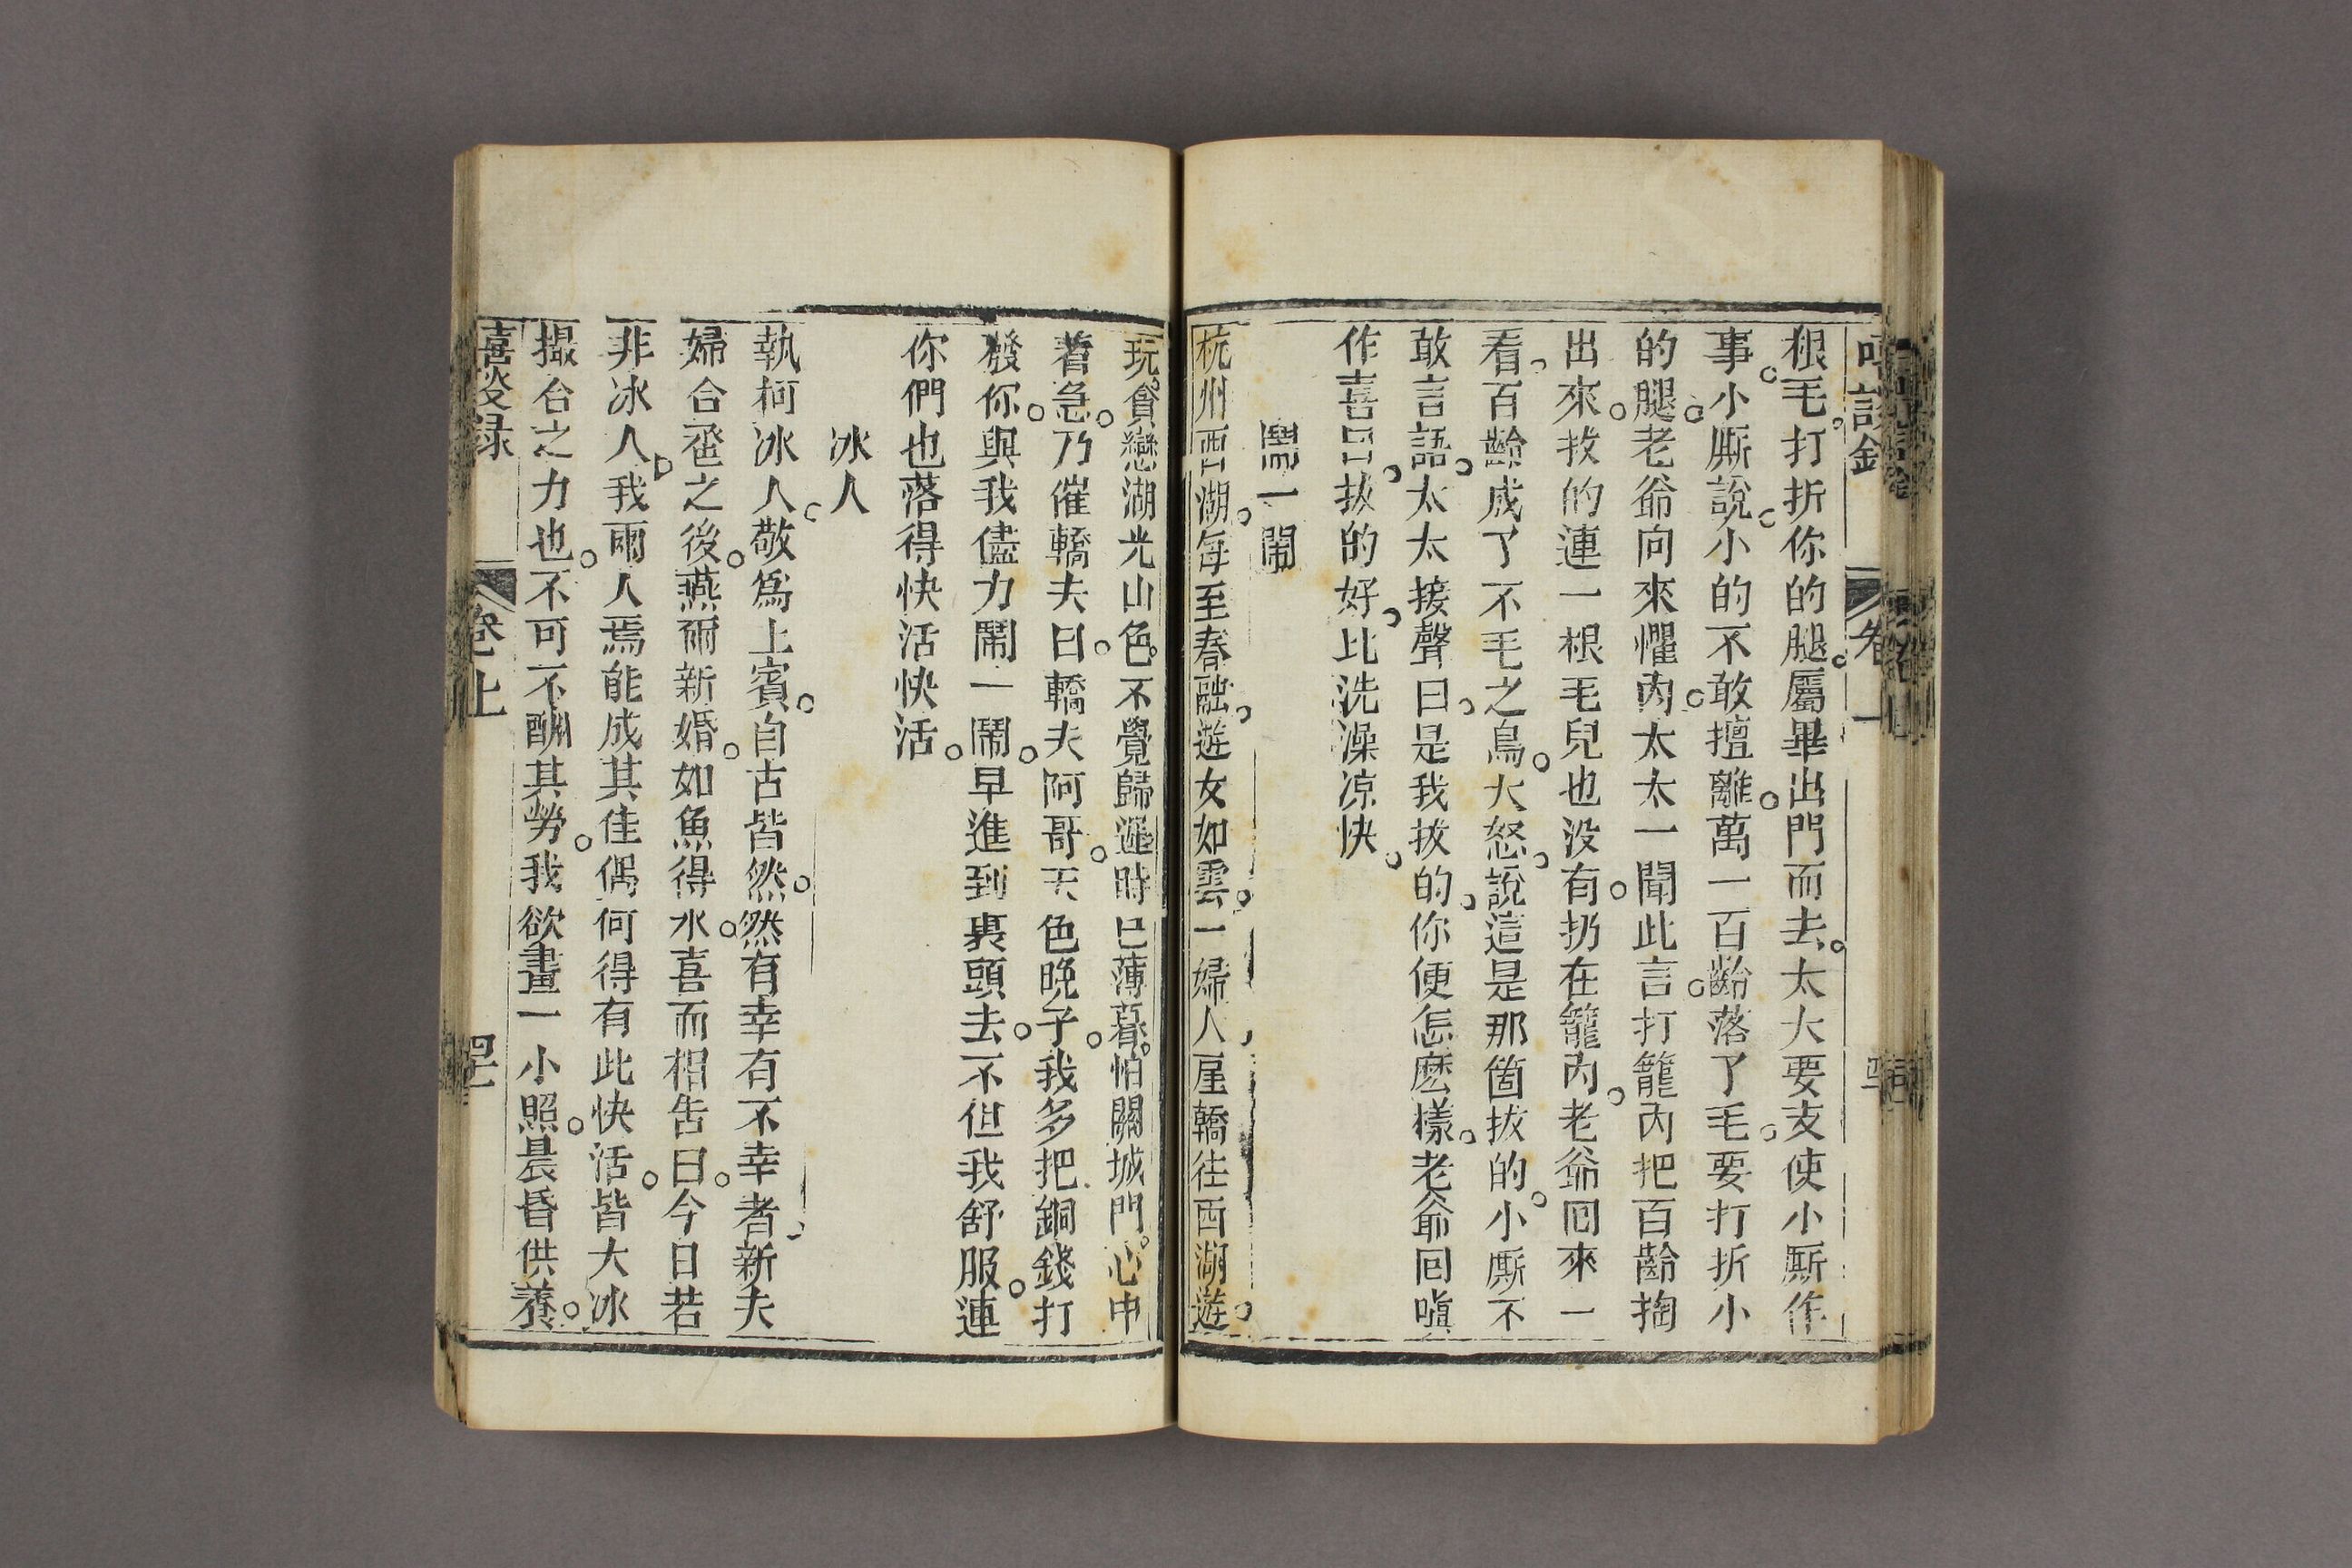 根毛打折你的腿屬畢出門而去太太要支使小厮作
事小厮說小的不敢擅離萬一百齡落了毛要打折小
的腿老爺向來懼內太太一聞此言打籠內把百齡掏
出來拔的連一根毛兒也没有扔在籠內老爺囘來一
看百齡成了不毛之鳥大怒說這是那箇拔的小厮不
敢言語太太接聲曰是我拔的你便怎麽樣老爺囘嗔
作喜曰拔的好比洗澡凉快
鬧一鬧
杭州西湖每至春融遊女如雲一婦人雇轎往西湖遊
玩貪戀湖光山色不覺歸遲時已薄暮怕關城門心中
着急乃催轎夫曰轎夫阿哥天色晚了我多把銅錢打
發你與我儘力鬧一鬧早進到裏頭去不但我舒服連
你們也落得快活快活
冰人
執柯冰人敬爲上賓自古皆然然有幸有不幸者新夫
婦合卺之後燕爾新婚如魚得水喜而相告曰今日若
非冰人我兩人焉能成其佳偶何得有此快活皆大冰
撮合之力也不可不酬其勞我欲畫一小照晨昏供養
喜談録 卷上